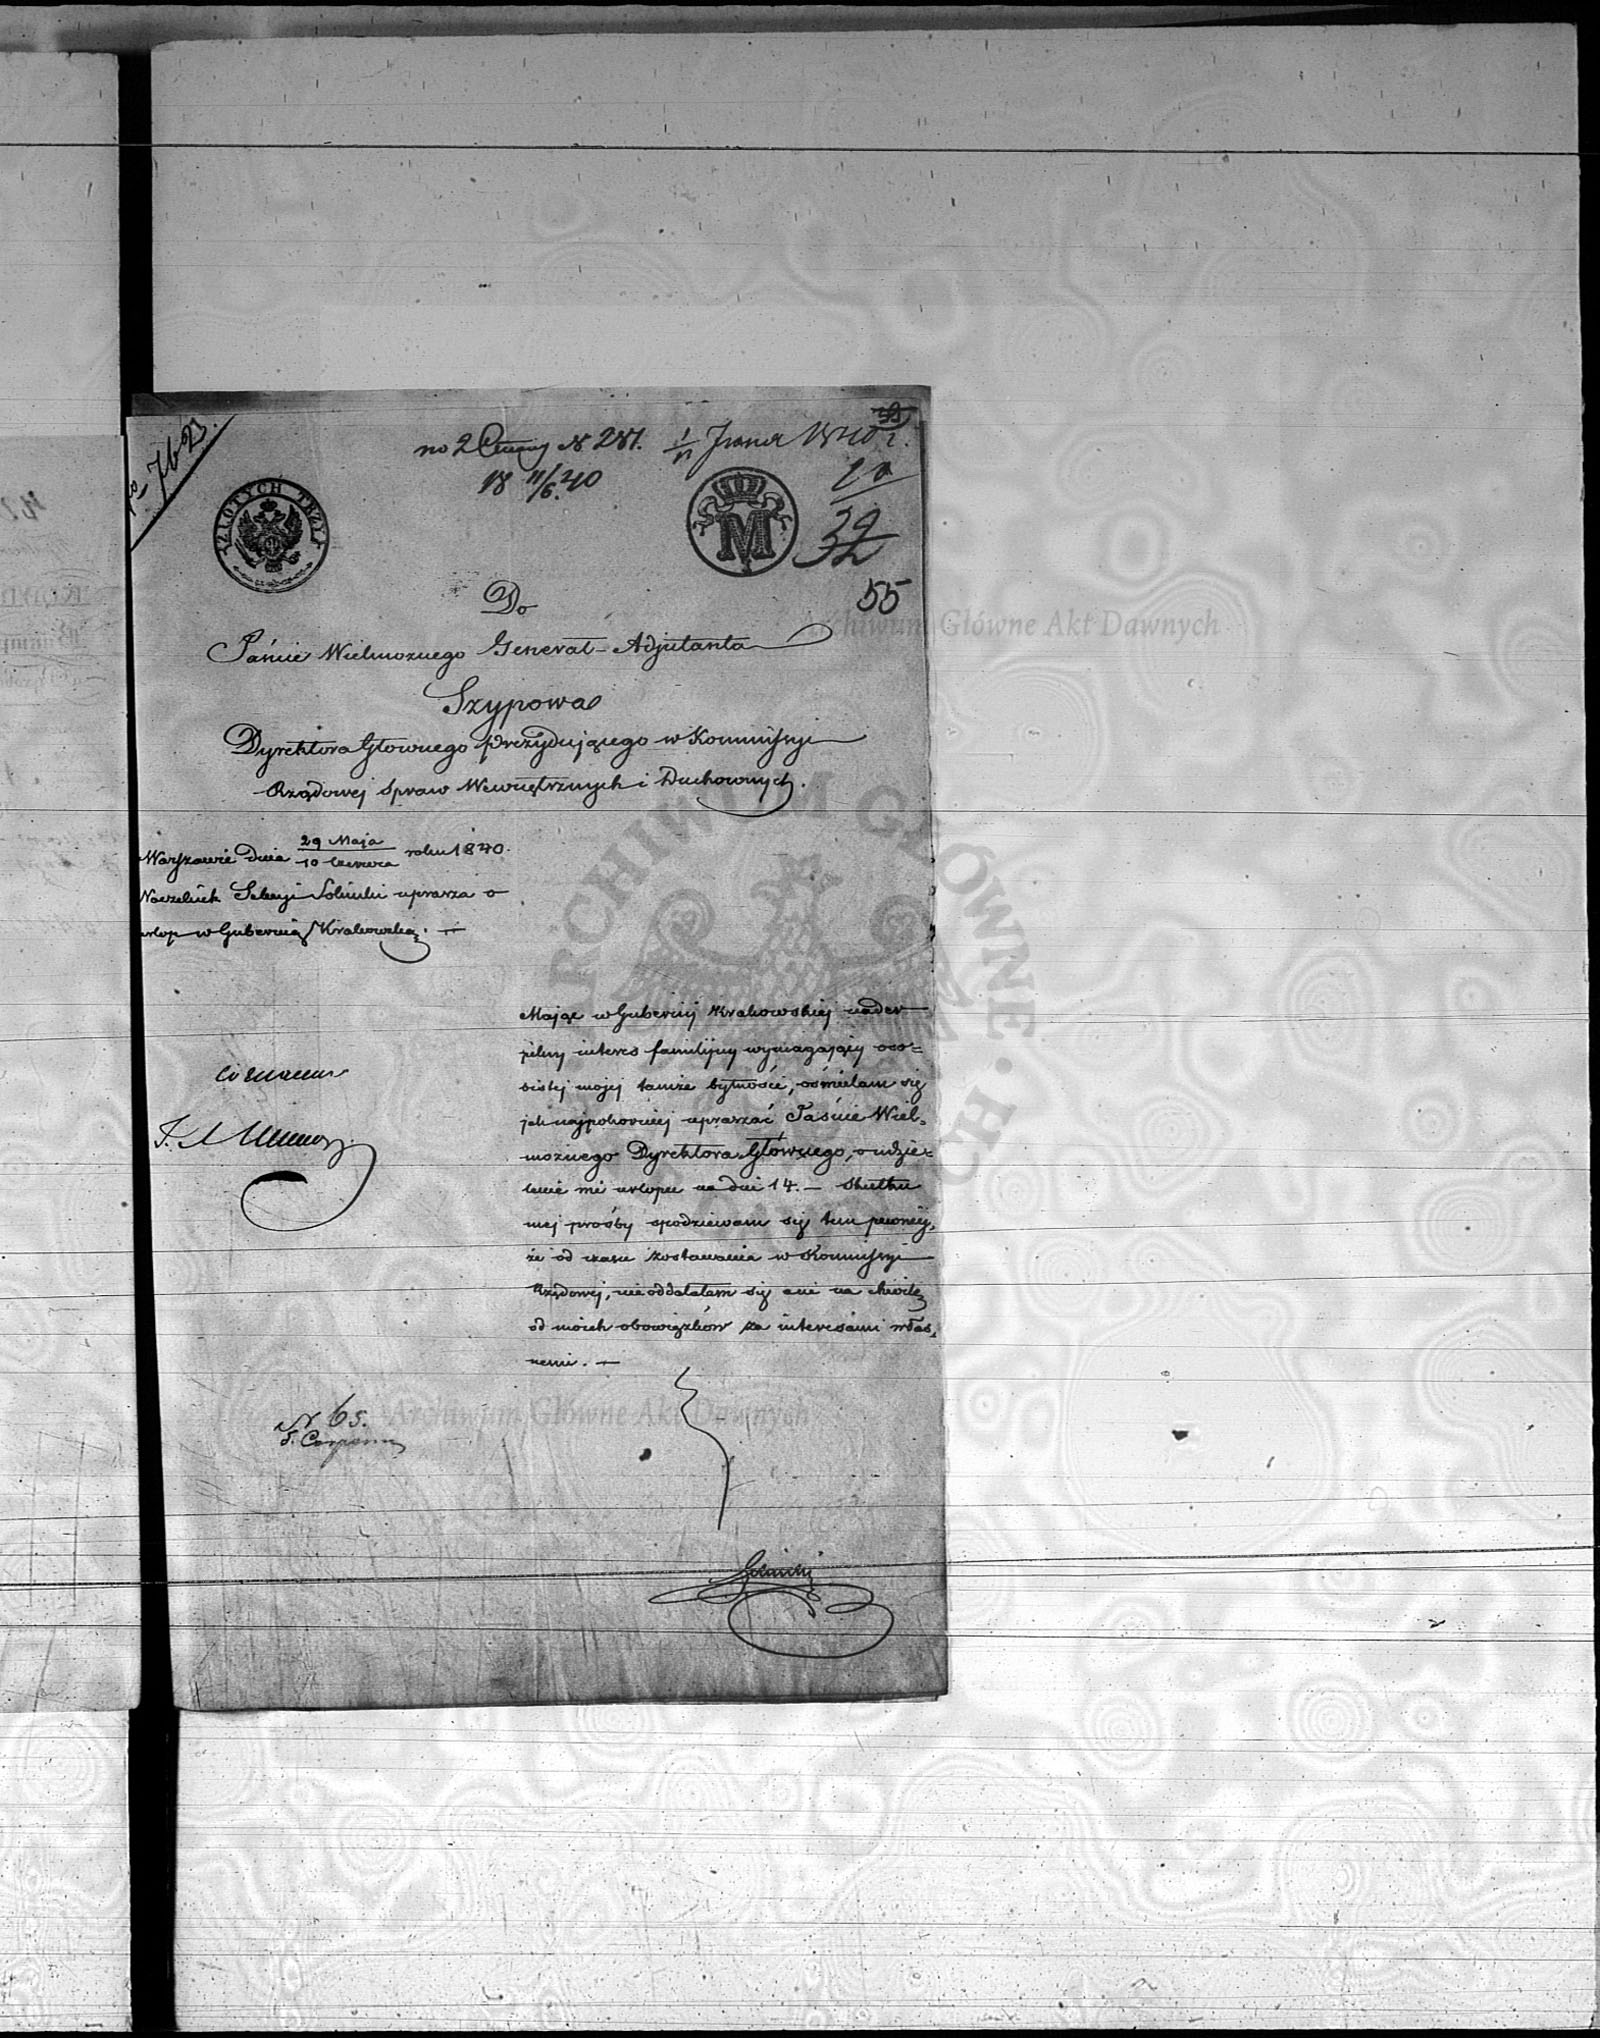 No 7623.
no 2 № 281.
18 11/6 40
1840 r.
20
32
55
ZŁOTYCH TRZY
M
Do
Jaśnie Wielmożnego General-Adjutanta
Szypowa
Dyrektora Głownego prezydującego w Kommissyi
Rządowej Spraw Wewnętrznych i Duchownych.
Warszawie dnia 29 Maja / 10 Czerwca roku 1840.
Naczelnik Sekcyi Solnicki uprasza o
urlop w Gubernią Krakowską. —
Mając w Gubernij Krakowskiej nader
pilny interes familijny wymagający oso=
bistej mojej tamże bytności, ośmielam się
jak najpokorniej upraszać Jaśnie Wiel=
możnego Dyrektora Głównego, o udzie=
lenie mi urlopu na dni 14. — Skutku
mej prośby spodziewam się tem pewniej,
że od czasu zostawania w Kommissyi
Rządowej, nie oddalałam się ani na chwilę
od moich obowiązków za interesami włas=
nemi. —
N 65.
Archiwum Główne Akt Dawnych
Archiwum Główne Akt Dawnych
ARCHIWUM GŁÓWNE